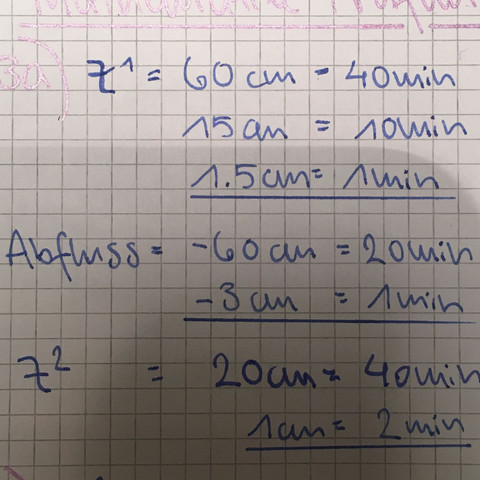 3a)
Z¹ = 60 cm - 40min
15 cm = 10min
1.5 cm = 1min
Abfluss = -60 cm = 20min
-3 cm = 1min
Z² = 20cm = 40min
1cm = 2 min